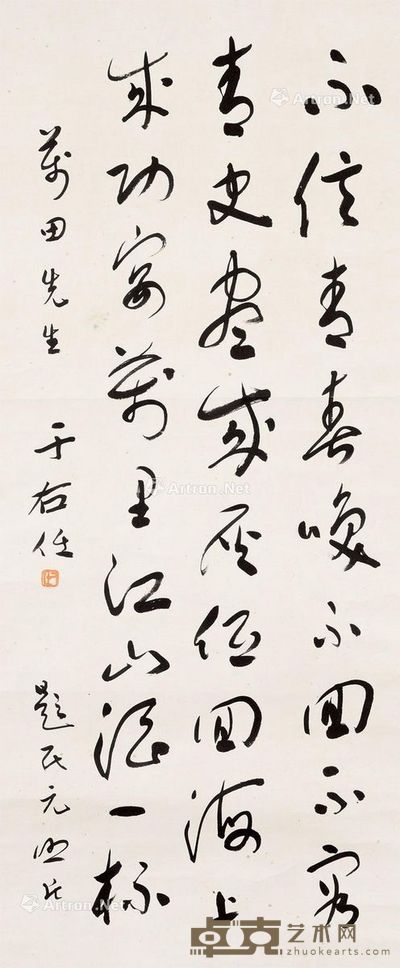 不信青春喚不回不容
青史盡成灰低回海上
成功宴萬里江山酒一杯
萬田先生 于右任 題民元照片
Artron.Net
Artron.Net
Artron.Net
卓克艺术网
zhuokearts.com